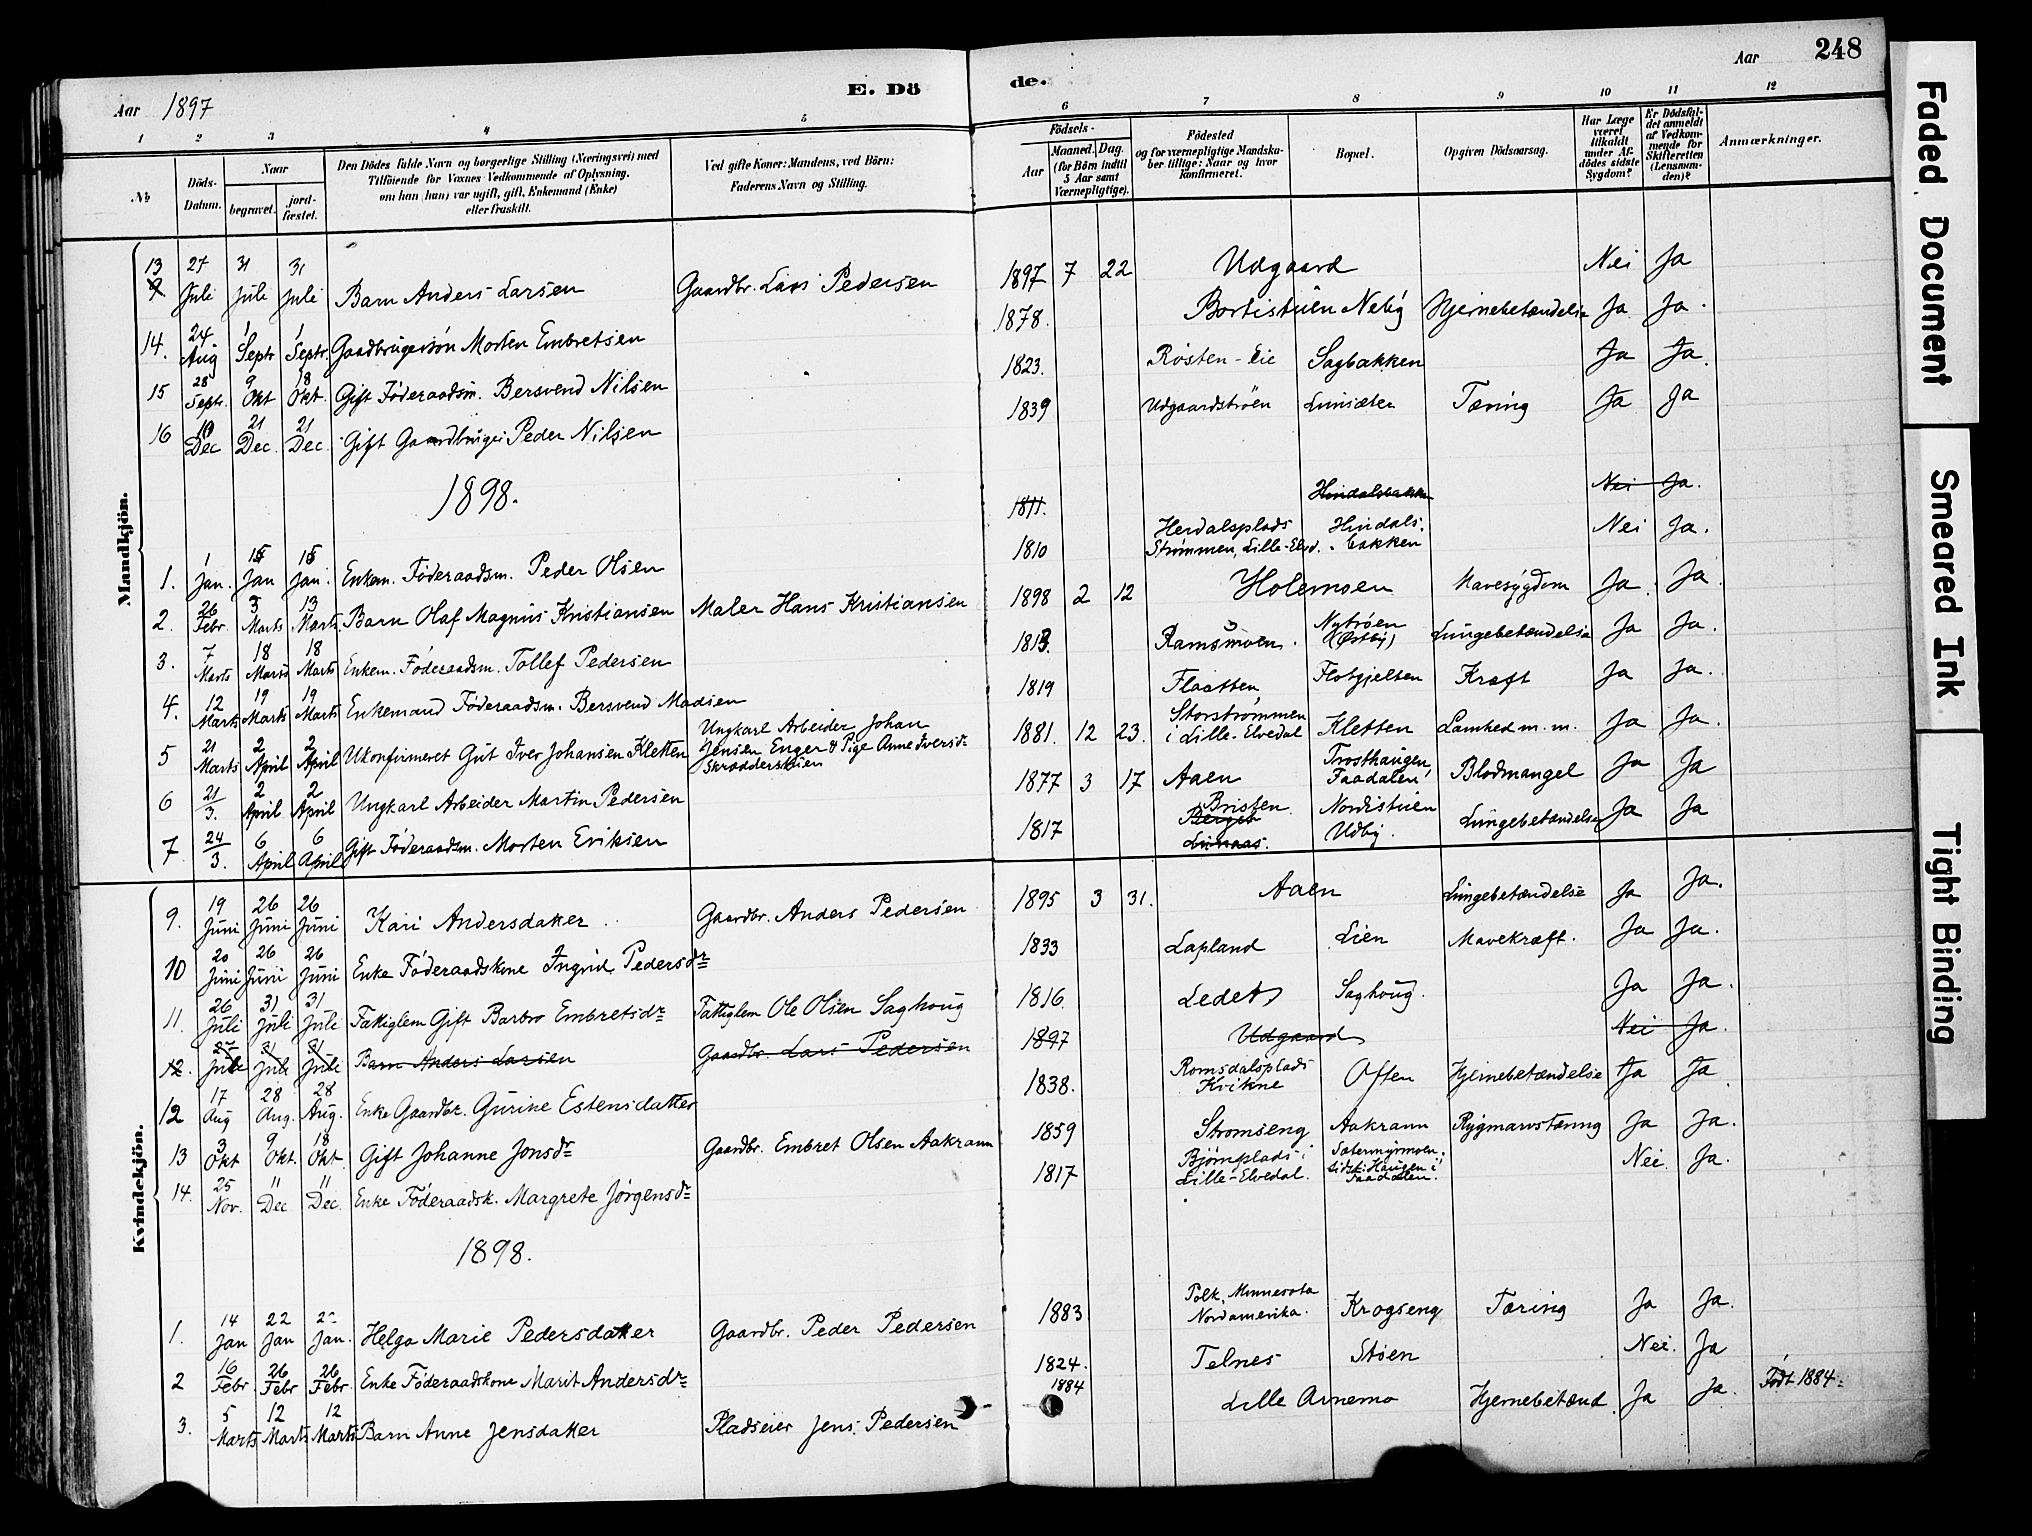 Aar 1897
E. Dö
de.
Aar 248
1 2 3 4 5 6 7 8 9 10 11 12
№
Döds-Datum.
Naar
begravet.
jord-fæstet.
Den Dödes fulde Navn og borgerlige Stilling (Næringsvei) med
Tilföiende for Voxnes Vedkommende af Oplysning,
om han (hun) var ugift, gift, Enkemand (Enke)
eller fraskilt.
Ved gifte Koner: Mandens, ved Börn:
Faderens Navn og Stilling.
Födsels-
Aar
Maaned. Dag.
(for Börn indtil
5 Aar samt
Værnepligtige).
Födested
og for værnepligtige Mandska-
ber tillige: Naar og hvor
konfirmeret.
Bopæl.
Opgiven Dödsaarsag.
Har Læge
været
tilkaldt
under Af-
dödes sidste
Sygdom?
Er Dödsfal-
det anmeldt
af Vedkom-
mende for
Skifteretten
(Lensman-
den)?
Anmærkninger.
Mandkjön.
13 9 27 Juli 31 Juli 31 Juli Barn Anders Larsen Gaardbr. Lars Pedersen 1897 7 22 Udgaard Nei Ja
14. 24 Aug 1 Septr 1 Septr. Gaardbrugersøn Morten Embretsen 1878. Bortistuen Neby Hjernebetændelse Ja Ja.
15 28 Septr. 9 Okt 18 Okt. Gift Føderaadsm. Bersvend Nilsen 1823. Røsten-Eie Sagbakken Ja Ja.
16 10 Dec 21 Dec. 21 Dec. Gift Gaardbruger Peder Nilsen 1839 Udgaardstrøen Lunsæter Tæring Ja Ja
1898.
1811. Hindalsbakken Nei Ja.
1. 1 Jan. 15 Jan 15 Jan. Enkem. Føderaadsm. Peder Olsen 1810 Herdalsplads Strømmen, Lille-Elvd. Hindals-bakken Nei Ja.
2. 26 Febr. 5 Marts 13 Marts. Barn Olaf Magnus Kristiansen Maler Hans Kristiansen 1898 2 12 Holemoen Mavesygdom Ja. Ja.
3. 7 Marts 18 Marts 18 Marts Enkem. Føderaadsm. Tollef Pedersen 1813. Ramsmoen. Nytrøen (Østby) Lungebetændelse Ja Ja.
4. 12 Marts 19 Marts 19 Marts Enkemand Føderaadsm. Bersvend Madsen 1819 Flaatten Flotgjelten Kræft Ja Ja.
5 21 Marts 2 April 2 April Ukonfirmeret Gut Iver Johansen Kletten Ungkarl Arbeider Johan Jensen Enger & Pige Anne Iversdr Skradderstuen 1881. 12 23. Storstrømmen i Lille-Elvedal Kletten Lamhed m.m. Ja Ja.
6 21/3. 2 April 2 April Ungkarl Arbeider Martin Pedersen 1877 3 17 Aaen Trosthaugen, Faadalen Blodmangel Ja Ja
7 24/3. 6 April 6 April Gift Føderaadsm. Morten Eriksen 1817 Bristen Bergen Lunaas. Nordistuen Udby. Lungebetændelse Ja Ja
Kvindekjön.
9. 19 Juni 26 Juni 26 Juni Kari Andersdatter. Gaardbr. Anders Pedersen 1895 3 31. Aaen Lungebetændelse Ja Ja.
10 20 Juni 26 Juni 26 Juni Enke Føderaadskone Ingrid Pedersdr 1833 Lapland Lien Mavekræft. Ja Ja.
11. 26 Juli 31 Juli 31 Juli Fattiglem Gift Barbro Embretsdr Fattiglem Ole Olsen Saghoug 1816 Ledet Saghoug. Ja Ja.
12. 27 Juli 31 Juli 31 Juli Barn Anders Larsen Gaardbr. Lars Pedersen 1897 Udgaard Nei Ja.
12 17 Aug 28 Aug. 28 Aug. Enke Gaardbr. Gurine Estensdatter 1838. Romsdalsplads Kvikne Often Hjernebetændelse Ja Ja.
13 3 Okt 9 Okt. 18 Okt. Gift Johanne Jonsdr Gaardbr. Embret Olsen Aakrann 1859 Strømseng Aakrann Rygmarvstæring Ja Ja.
14. 25 Nov. 11 Dec 11 Dec. Enke Føderaadsk. Margrete Jørgensdr 1817 Bjørnplads i Lille-Elvedal. Sætermyrmoen, sidst Haugen i Faadalen. Nei. Ja.
1898.
1. 14 Jan 22 Jan 22 Jan. Helga Marie Pedersdatter Gaardbr. Peder Pedersen 1883 Polk, Minnesota Nordamerika. Krogseng Tæring Ja Ja.
2 16 Febr 26 Febr 26 Febr. Enke Føderaadskone Marit Andersdr 1824. Telnes Støen Nei. Ja
3. 5 Marts 12 Marts 12 Marts Barn Anne Jensdatter Pladseier Jens Pedersen 1884 Lille Arnemo Hjernebetænd. Ja Ja. Født 1884.
Faded Document
Smeared Ink
Tight Binding